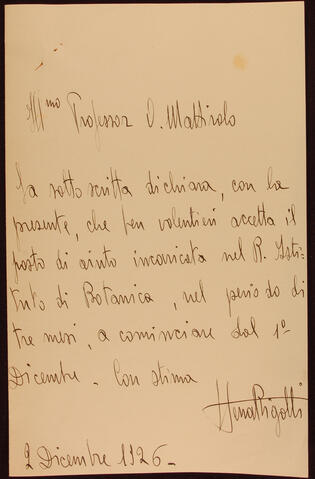 Ill.mo Professor O. Mattirolo
La sottoscritta dichiara, con la
presente, che ben volentieri accetta il
posto di aiuto incaricata nel R. Isti-
tuto di Botanica, nel periodo di
tre mesi, a cominciare dal 1º
Dicembre. Con stima
Rigotti
2 Dicembre 1926_